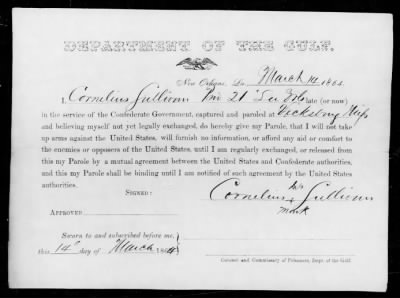 DEPARTMENT OF THE GULF.
New Orleans, La. March 14 1864
I, Cornelius Sullivan Priv 21" La Vols late (or now)
in the service of the Confederate Government, captured and paroled at Vicksburg Miss
and believing myself not yet legally exchanged, do hereby give my Parole, that I will not take
up arms against the United States, will furnish no information, or afford any aid or comfort to
the enemies or opposers of the United States, until I am regularly exchanged, or released from
this my Parole by a mutual agreement between the United States and Confederate authorities,
and this my Parole shall be binding until I am notified of such agreement by the United States
authorities.
SIGNED:
his
Cornelius x Sullivan
mark
APPROVED
Sworn to and subscribed before me,
this 14" day of March 1864
Colonel and Commissary of Prisoners, Dept. of the Gulf.